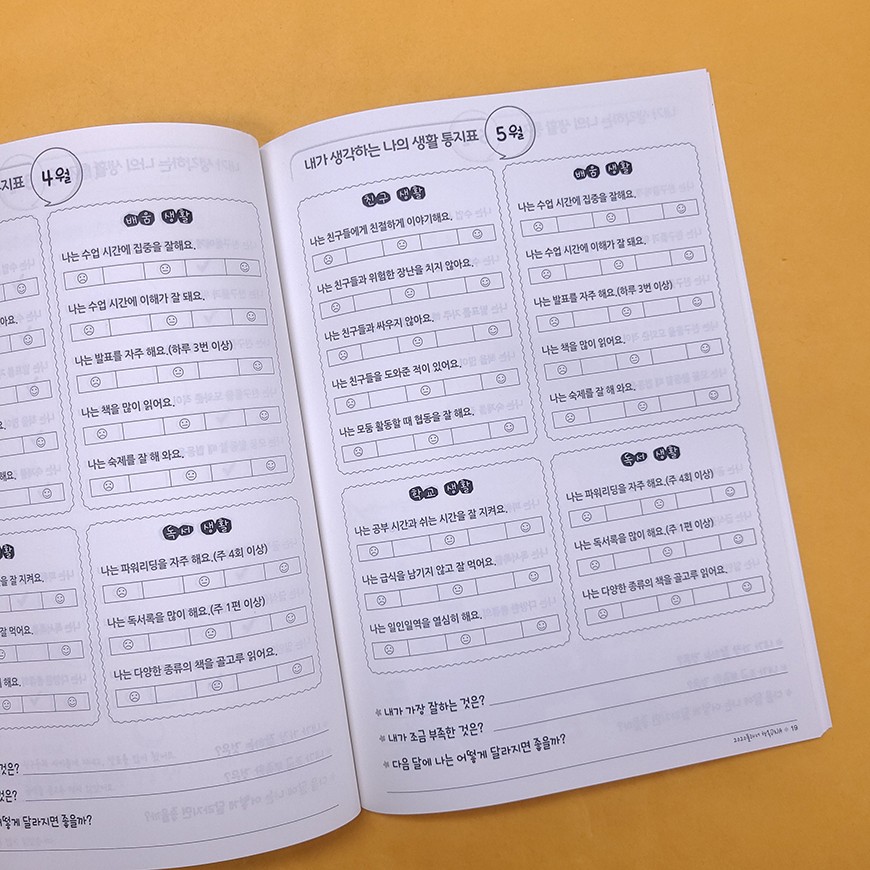 지표
4월
배움 생활
나는 수업 시간에 집중을 잘해요.
나는 수업 시간에 이해가 잘 돼요.
나는 발표를 자주 해요.(하루 3번 이상)
나는 책을 많이 읽어요.
나는 숙제를 잘 해 와요.
독서 생활
나는 파워리딩을 자주 해요.(주 4회 이상)
나는 독서록을 많이 해요.(주 1편 이상)
나는 다양한 종류의 책을 골고루 읽어요.
아요.
해요.
활
을 잘 지켜요.
잘 먹어요.
해요.
것은?
것은?
떻게 달라지면 좋을까?
내가 생각하는 나의 생활 통지표
5월
친구 생활
나는 친구들에게 친절하게 이야기해요.
나는 친구들과 위험한 장난을 치지 않아요.
나는 친구들과 싸우지 않아요.
나는 친구들을 도와준 적이 있어요.
나는 모둠 활동할 때 협동을 잘 해요.
배움 생활
나는 수업 시간에 집중을 잘해요.
나는 수업 시간에 이해가 잘 돼요.
나는 발표를 자주 해요.(하루 3번 이상)
나는 책을 많이 읽어요.
나는 숙제를 잘 해 와요.
학교 생활
나는 공부 시간과 쉬는 시간을 잘 지켜요.
나는 급식을 남기지 않고 잘 먹어요.
나는 일인일역을 열심히 해요.
독서 생활
나는 파워리딩을 자주 해요.(주 4회 이상)
나는 독서록을 많이 해요.(주 1편 이상)
나는 다양한 종류의 책을 골고루 읽어요.
내가 가장 잘하는 것은?
내가 조금 부족한 것은?
다음 달에 나는 어떻게 달라지면 좋을까?
19